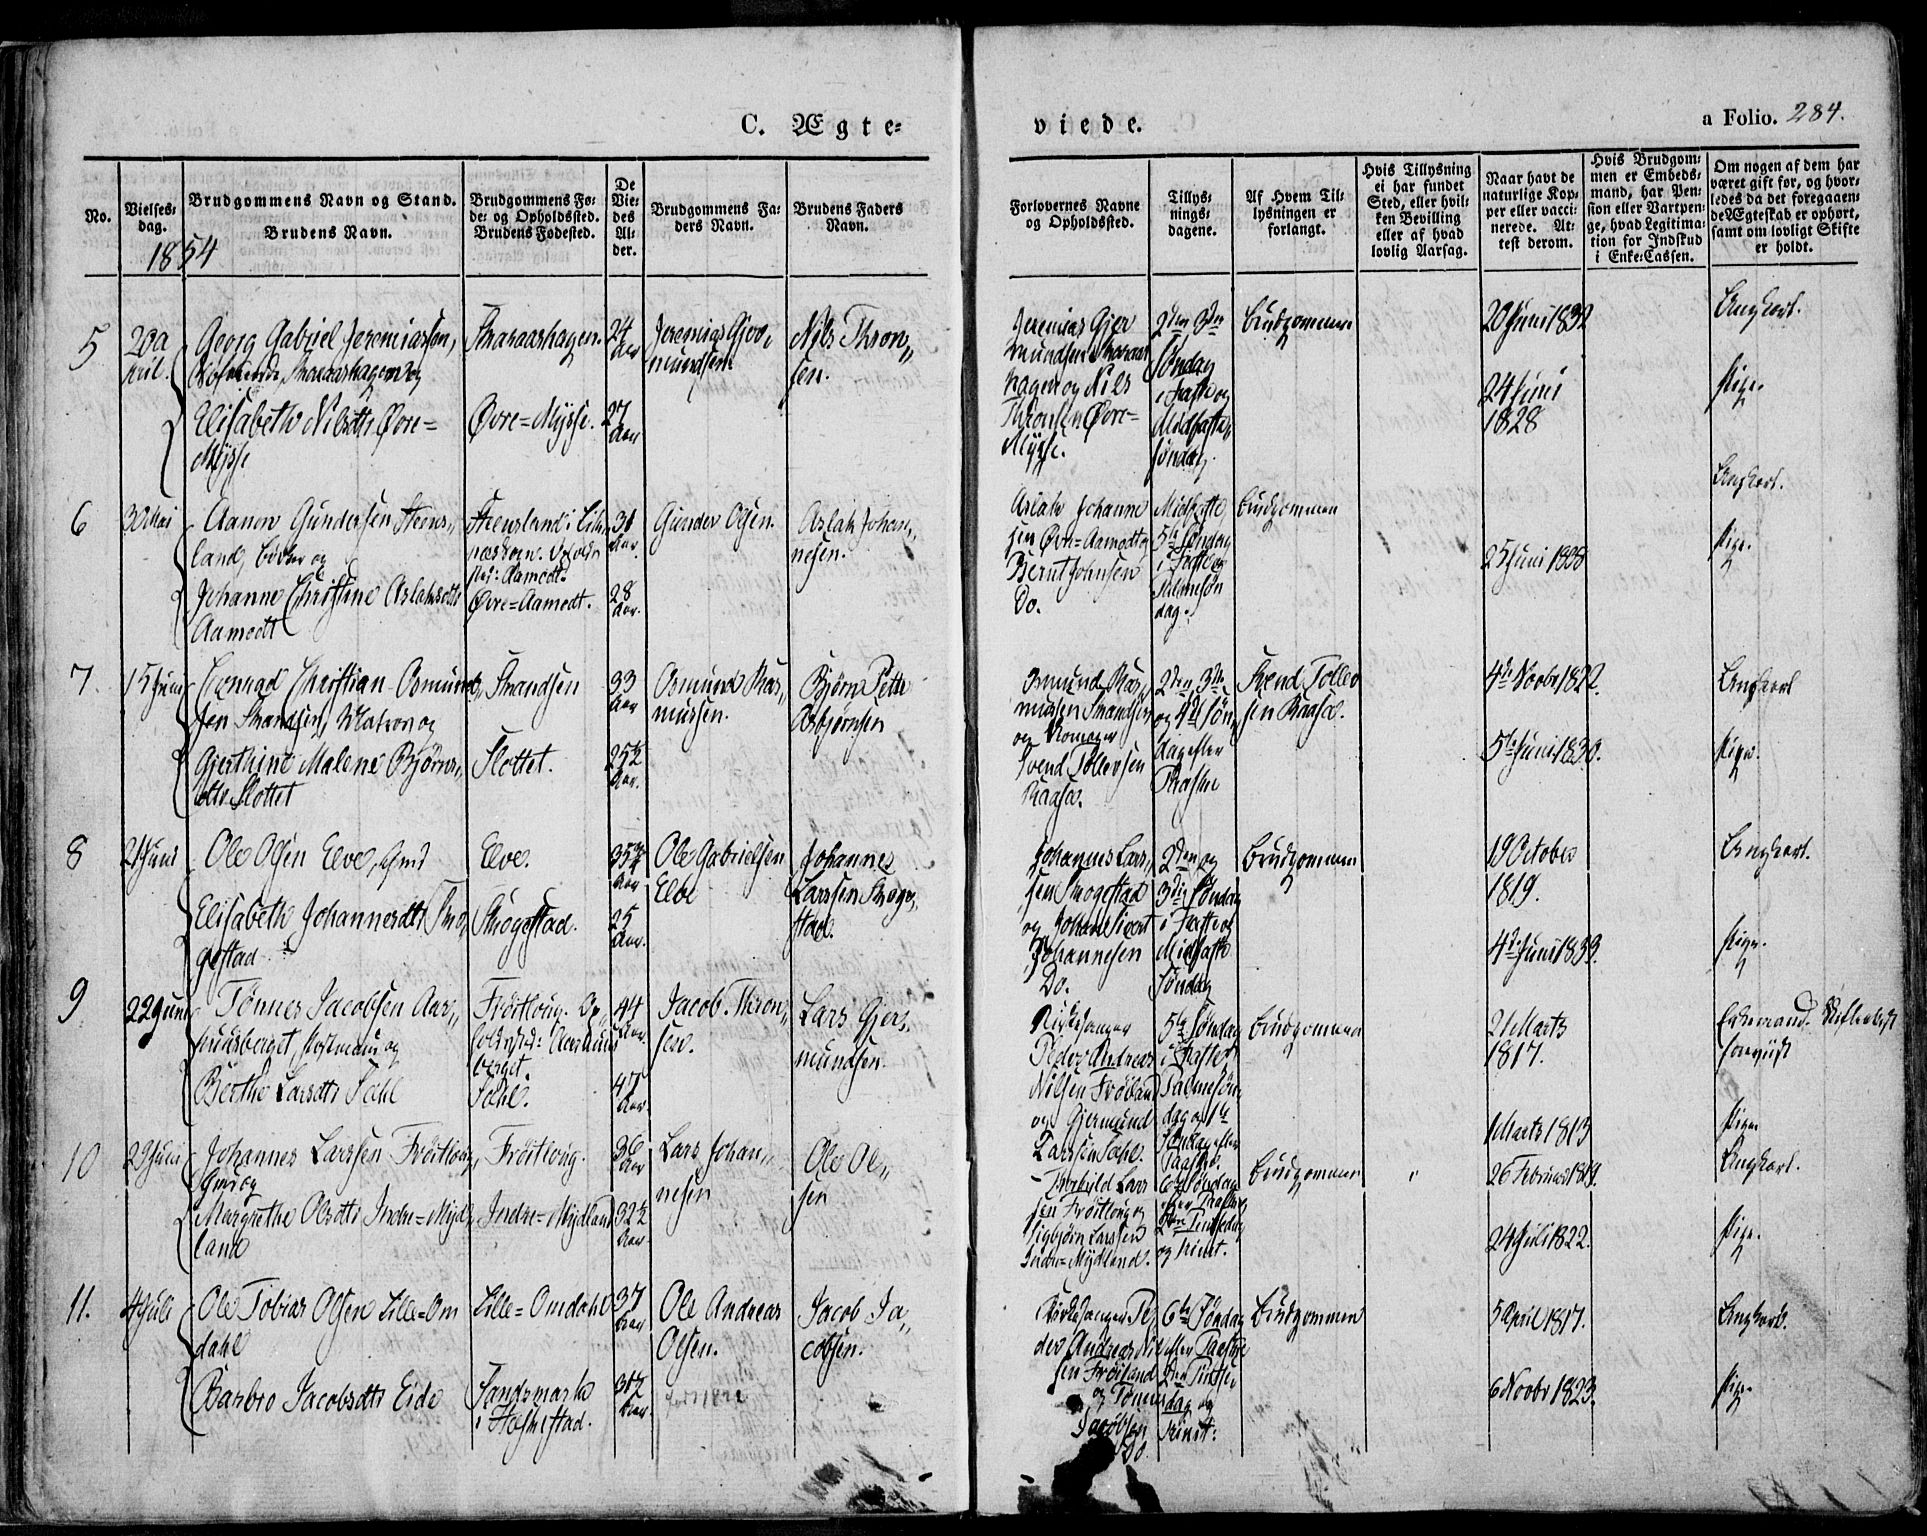 C. Ægte=
viede.
a Folio. 284.
No.
Vielses=
dag.
Brudgommens Navn og Stand.
Brudens Navn.
Brudgommens Fø=
de= og Opholdssted.
Brudens Fødested.
De
Vie=
des
Al=
der.
Brudgommens Fa=
ders Navn.
Brudens Faders
Navn.
Forlovernes Navne
og Opholdssted.
Tillys=
nings=
dagene.
Af Hvem Til=
lysningen er
forlangt.
Hvis Tillysning
ei har fundet
Sted, eller hvil=
ken Bevilling
eller af hvad
lovlig Aarsag.
Naar havt de
naturlige Kop=
per eller vacci=
nerede. At=
test derom.
Hvis Brudgom=
men er Embeds=
mand, har Pen=
sion eller Vartpen=
ge, hvad Legitima=
tion for Indskud
i Enke=Cassen.
Om nogen af dem har
været gift før, og hvor=
ledes da det foregaaen=
de Ægteskab er ophørt,
samt om lovligt Skifte
er holdt.
1854
5
20 A
pril.
Georg Gabriel Jeremiassen,
og
Elisabeth Nilsdtr Øvre=
Mysse
Øvre=Mysse.
24
Aar
27
Aar
Jeremias Gjer
mundsen
Nils Thron,,
sen.
Jeremias Gjer
mundsen
hagen og Nils
Thronsen Øvre=
Mysse.
2den 3die
Søndag
i Faste og
Midfaste
søndag.
Brudgommen
20 Juni 1832
24 Juni
1828
Ungkarl.
Pige.
6
30 Mai
Aanen Gundersen Steens,,
land, og
Johanne Christine Aslaksdtr
Aamodt
Steensland i
Aamodt.
Øvre=Aamodt.
31
Aar.
28
Aar.
Gunder Olsen.
Aslak Johan,,
nesen.
Aslak Johanne
sen Øvre=Aamodt og
Bernt Johnsen
Do.
Midfaste
5te Søndag
i Faste og
Palmesøn
dag.
Brudgommen
25 Juni 1828
Ungkarl.
Pige.
7.
15 Juni
Conrad Christian Osmund,,
sen Strandsen, Matros og
Gjerthine Malene Bjørns,,
dtr Slottet
Strandsen
Slottet.
33
Aar
25½
Aar.
Osmund Ras,,
mussen.
Bjørn Peter
Asbjørnsen
Osmund Ras,,
mussen Strandsen
og
Svend Tollevsen
2den, 3die
og 4de Søn,,
dag efter
Paaske
Svend Tollev
sen
4de Novbr 1822.
5te Juni 1830.
Ungkarl
Pige.
8
21 Juni
Ole Olsen Elve, Gmd
Elisabeth Johannesdtr Sko,,
gestad
Elve.
Skogestad.
35¾
Aar
25
Aar.
Ole Gabrielsen
Elve
Johannes
Larssen Skoge,,
stad.
Johannes Lars,,
sen Skogestad
og Johan Sivert
Johannesen
Do.
2den og
3die Søndag
i Faste og
Midfaste
Søndag
Brudgommen
19 October
1819.
4de Juni 1839.
Ungkarl.
Pige.
9
22 Juni
Tønnes Jacobsen Aar,,
huusberget, og
Berthe Larsdtr Sæhl
Frøitlog. Op,,
holdssted: Aarhuus
berget.
Sæhl.
44
Aar.
47
Aar.
Jacob Thron,,
sen.
Lars Gjer,,
mundsen.
Kirkesanger
Peder Andreas
Nilsen Frøiland
og Gjermund
Larssen Sæhl.
5te Søndag
i Faste,
Palmesøn,,
dag og 1te
Søndag efter
Paaske.
Brudgommen
21 Marts
1817.
1 Marts 1813
Enkemand.
Pige
10
29 Juni
Johannes Larssen Frøitlog,
Gmd og
Margrethe Olsdtr Indre=Myd,,
land
Frøitlog.
Indre=Mydland
36
Aar
32½
Aar.
Lars Johan,,
nesen
Ole Ol,,
sen
Lars
sen Frøitlog og
Sigbjørn Larssen
Indre=Mydland.
6te Søndag
efter Paaske
2den Pintsedag
og Trinit.
Brudgommen
26 Februar 1819.
24 Juli 1822.
Ungkarl.
Pige.
11.
4 Juli
Ole Tobias Olsen Lille=Om
dahl
Barbro Jacobsdtr Eide
Lille=Omdahl
Sandsmark
i
37
Aar
30½
Aar.
Ole Andreas
Olsen.
Jacob Ja,,
cobsen.
Kirkesanger Pe,,
der Andreas Nil
sen Frøiland
og Tønnes
Jacobsen
Do.
6te Søndag
efter Paaske
2den Pintse
dag og
Trinit:
Brudgommen
5 April 1817.
6 Novbr 1823.
Ungkarl.
Pige.